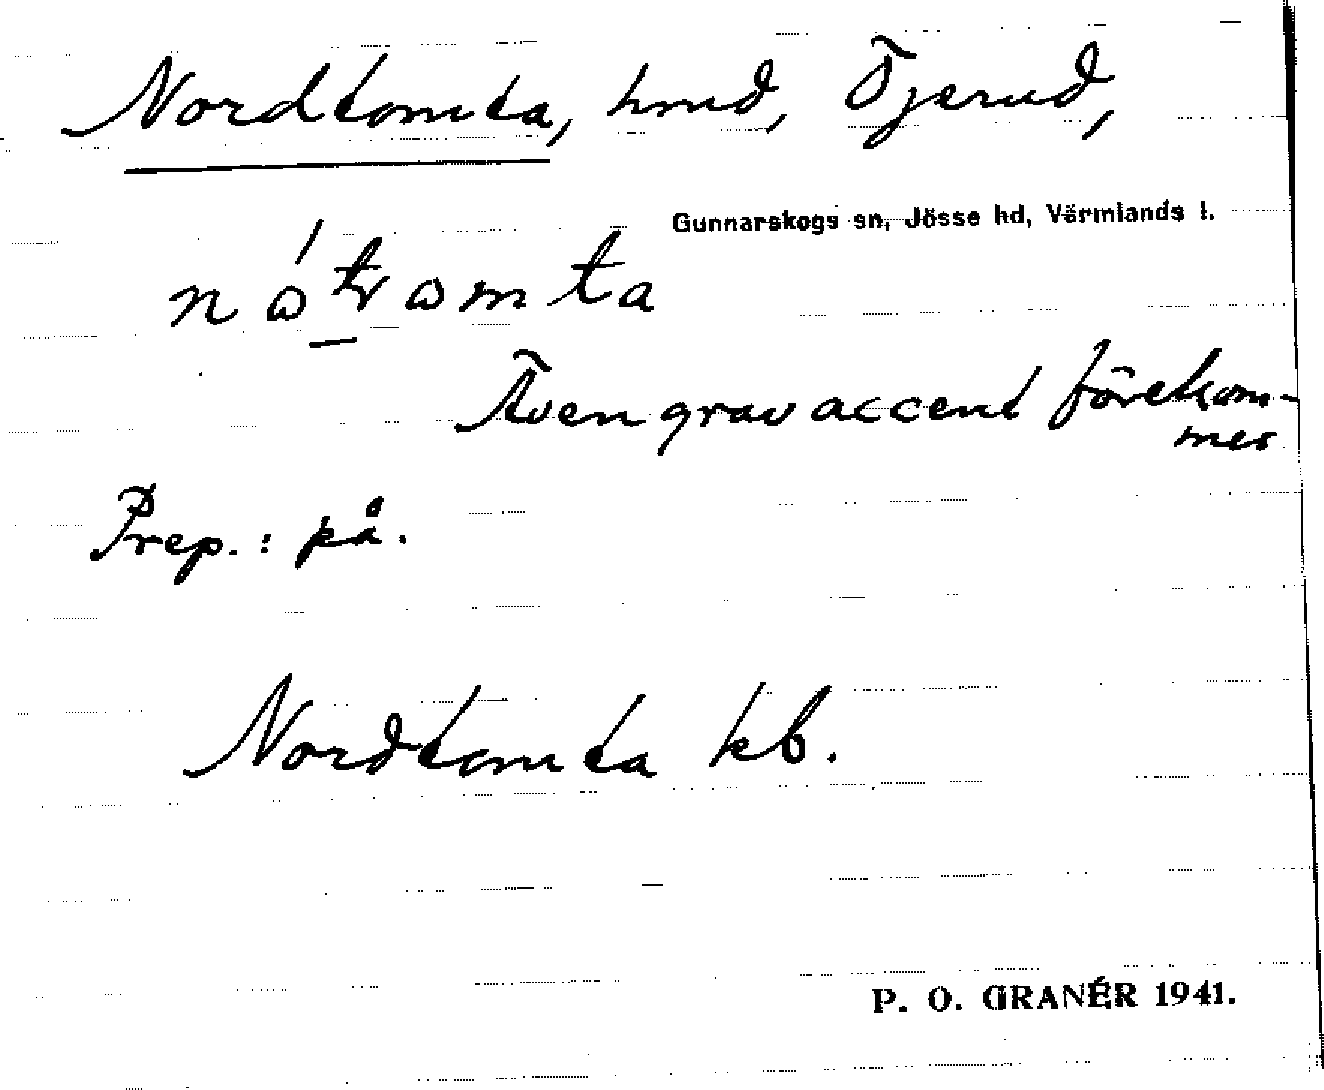 Nordtomta, hmd, Öjerud,
Gunnarskogs sn, Jösse hd, Värmlands l.
Även grav accent förekom-
mer
Prep.: på.
Nordtomta kb.
P. O. GRANÉR 1941.